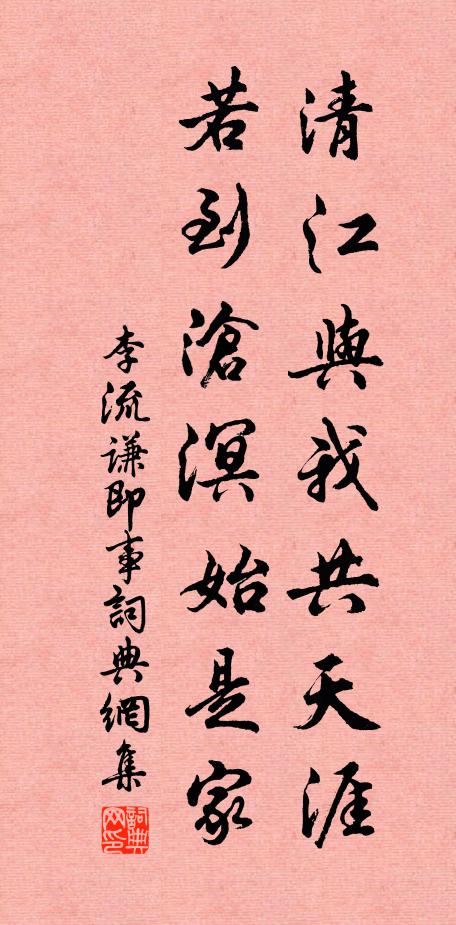 清江與我共天涯
若到滄溟始是家
李流谦即事詞典網集
詞典网印